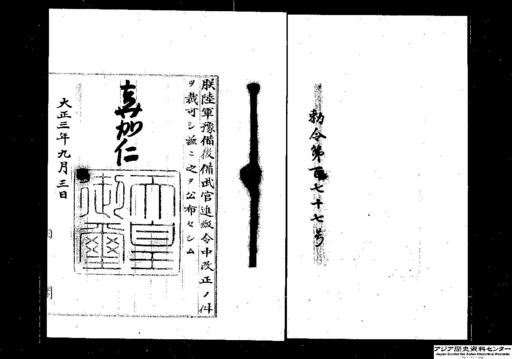 勅令第百七十七号
朕陸軍予備後備武官進級令中改正ノ件
ヲ裁可シ茲ニ之ヲ公布セシム
嘉仁
天皇御璽
大正三年九月三日
内閣
アジア歴史資料センター
Japan Center for Asian Historical Records